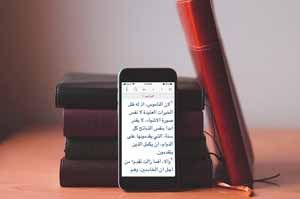 لان الناموس، اذ له ظل
الخيرات العتيدة لا نفس
صورة الاشياء، لا يقدر
ابدا بنفس الذبائح كل
سنة، التي يقدمونها على
الدوام، ان يكمل الذين
يتقدمون.
والا، افما زالت تقدم؟ من
اجل ان الخادمين، وهم